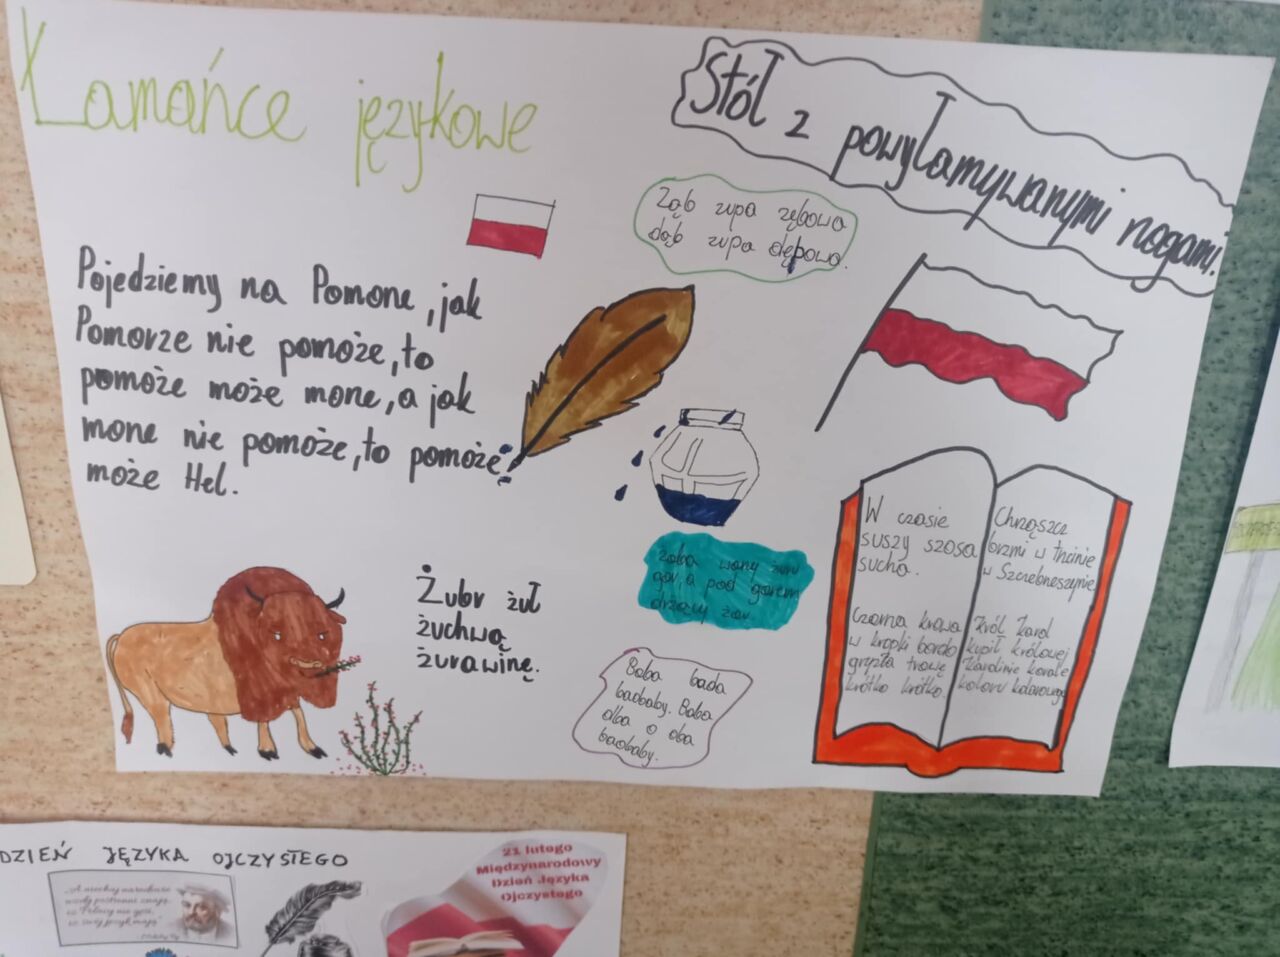 Łamańce językowe
Stół z powyłamywanymi nogami.
Ząb zupa zębowa
dąb zupa dębowa.
Pojedziemy na Pomone, jak
Pomorze nie pomoże, to
pomoże może mone, a jak
mone nie pomoże, to pomoże
może Hel.
Żubr żuł
żuchwą
żurawinę.
żaba wony żuru
gar, a pod garem
drzewy żar.
Baba bada
baobaby. Baba
dba o oba
baobaby.
W czasie
suszy szosa
sucha.
Czarna krowa
w kropki bordo
gryzła trawę
krótko krótko.
Chrząszcz
brzmi w trzcinie
w Szczebrzeszynie.
Król Karol
kupił królowej
Karolinie korale
koloru koralowego
DZIEŃ JĘZYKA OJCZYSTEGO
„A niechaj narodowie
wżdy postronni znają,
iż Polacy nie gęsi,
iż swój język mają"
21 lutego
Międzynarodowy
Dzień Języka
Ojczystego